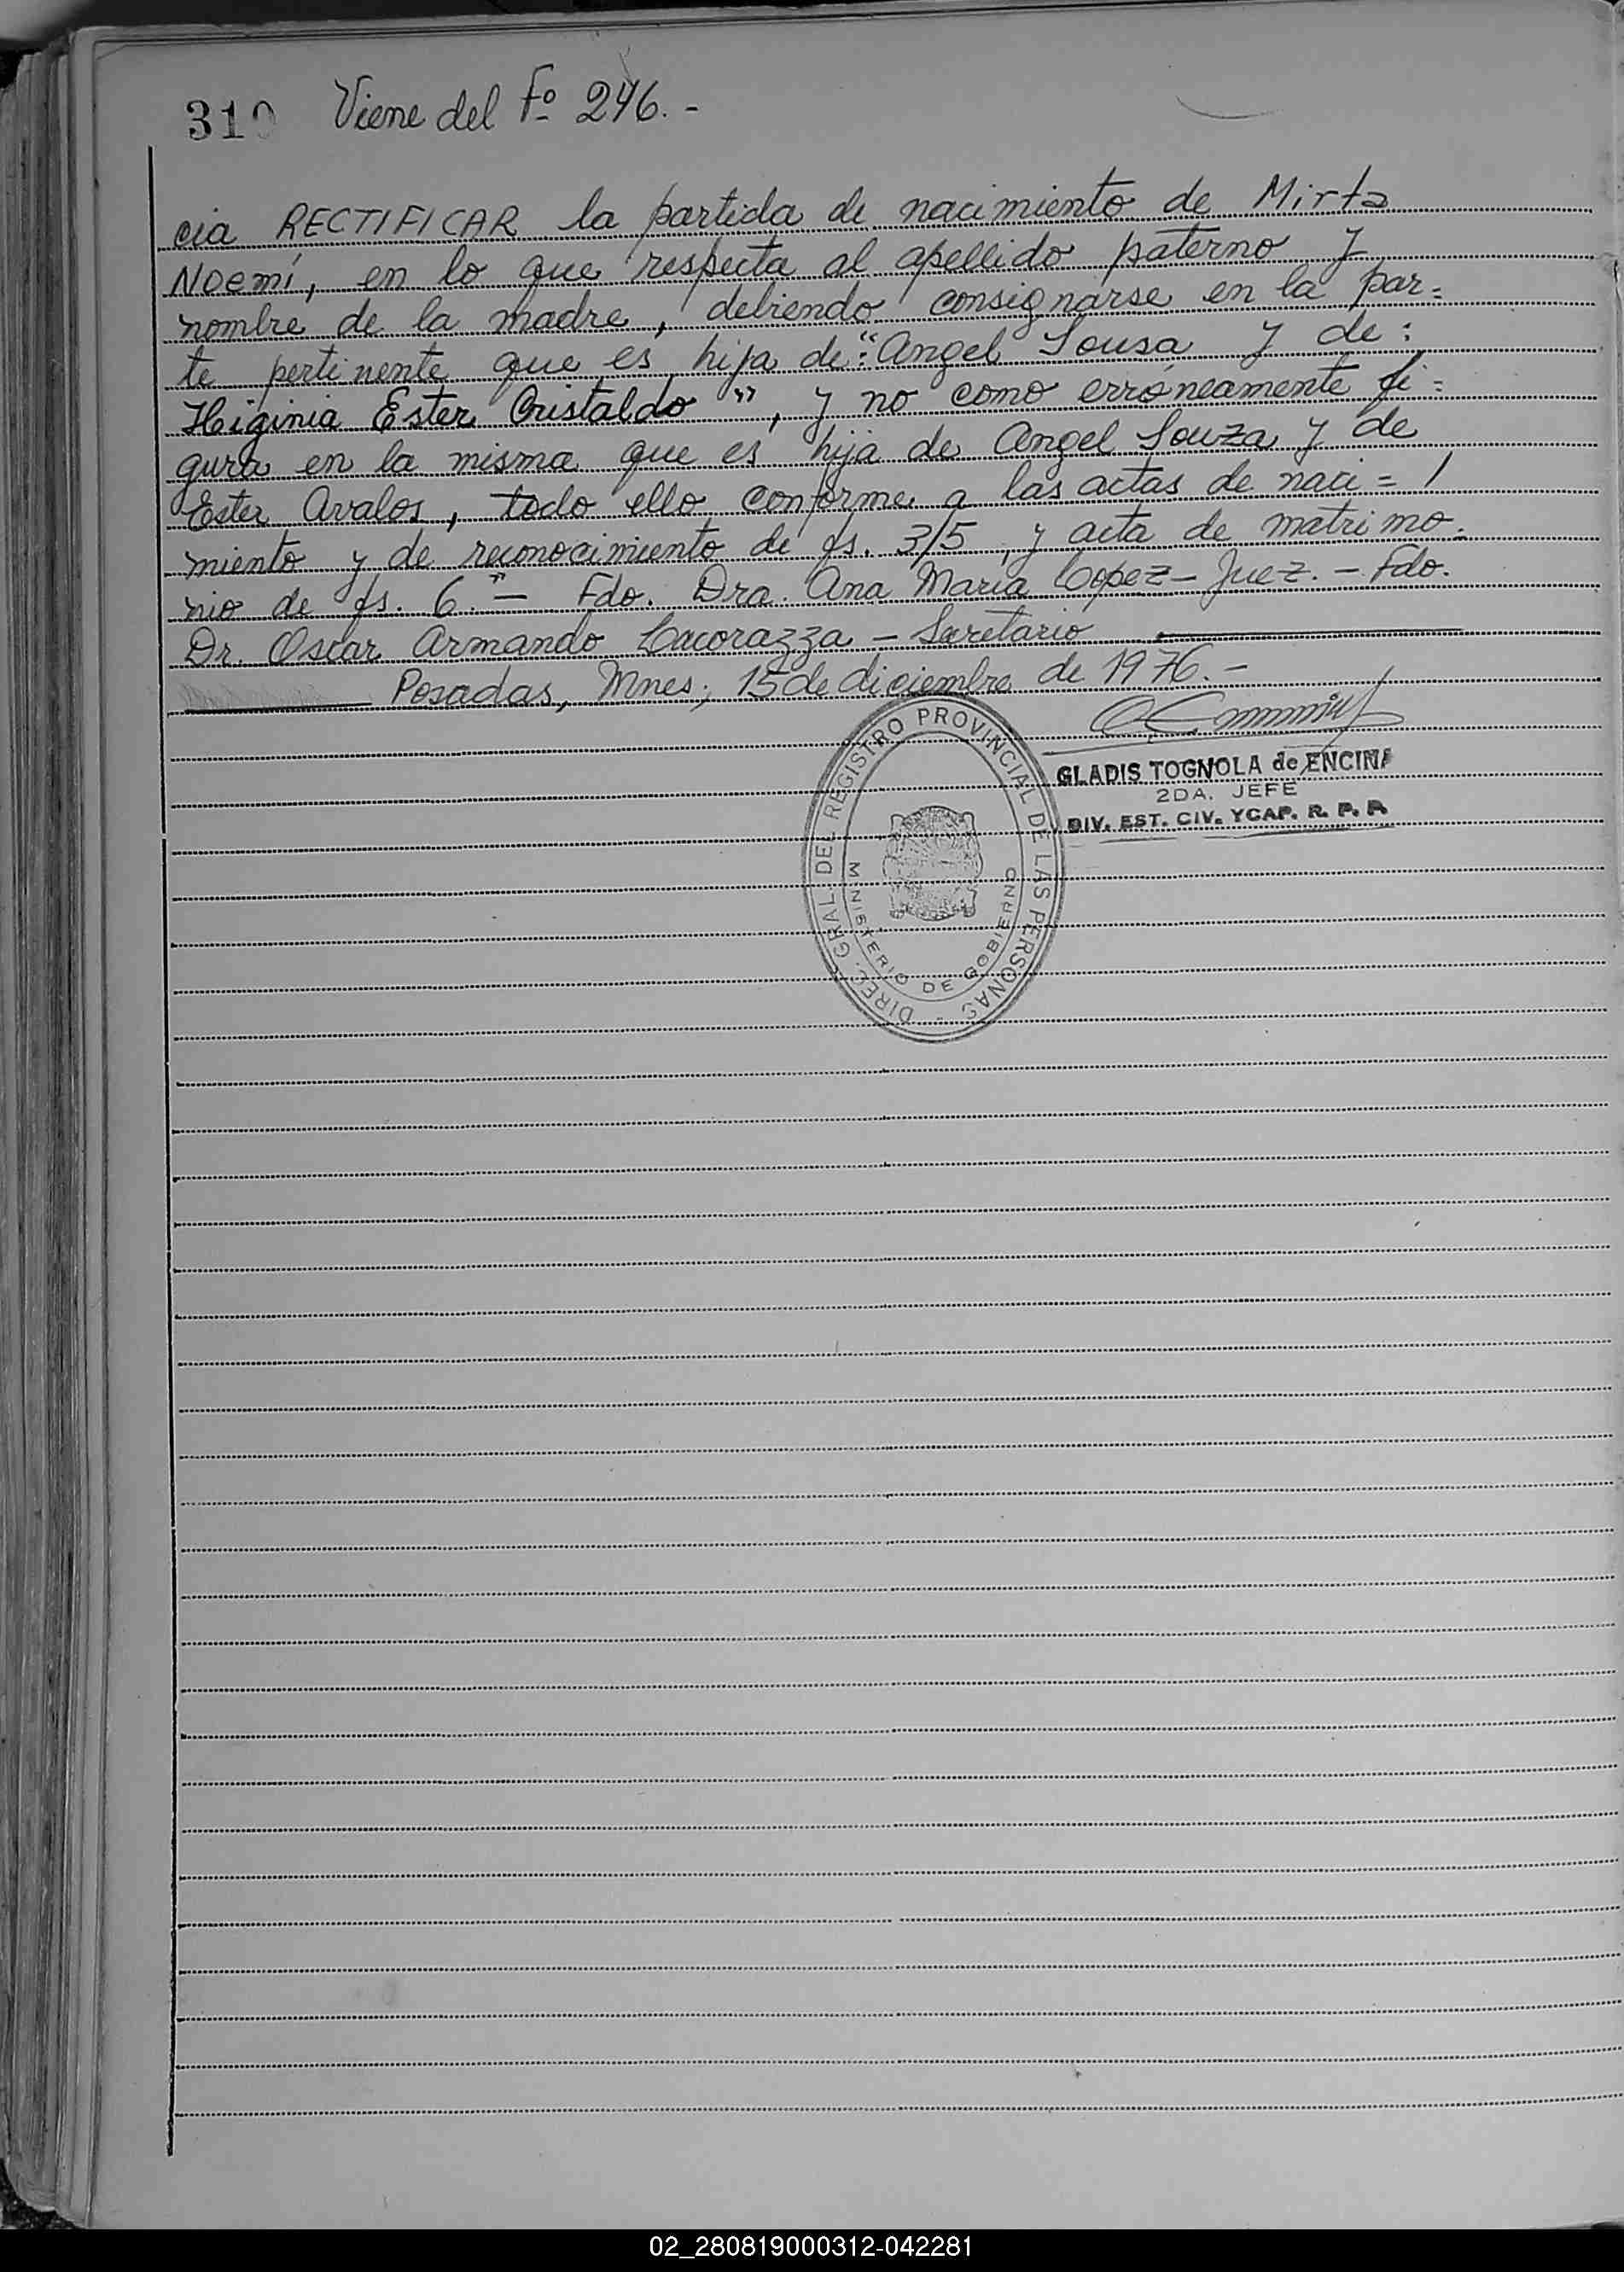 310 Viene del Fº 246.-
cia RECTIFICAR la partida de nacimiento de Mirta
Noemí, en lo que respecta al apellido paterno y
nombre de la madre, debiendo consignarse en la par=
te pertinente que es hija de: "Angel Sousa y de:
Higinia Ester Cristaldo", y no como erróneamente fi=
gura en la misma que es hija de Angel Souza y de
Ester Avalos, todo ello conforme a las actas de naci=/
miento y de reconocimiento de fs. 3/5, y acta de matrimo=
nio de fs. 6."- Fdo. Dra. Ana María Lopez - Juez. - Fdo.
Dr. Oscar Armando Cacorazza - Secretario
Posadas, Mnes; 15 de diciembre de 1976.-
GLADIS TOGNOLA de ENCINA
2DA. JEFE
DIV. EST. CIV. YCAP. R. P. P.
DIREC. GRAL. DEL REGISTRO PROVINCIAL DE LAS PERSONAS -
MINISTERIO DE GOBIERNO
02_280819000312-042281